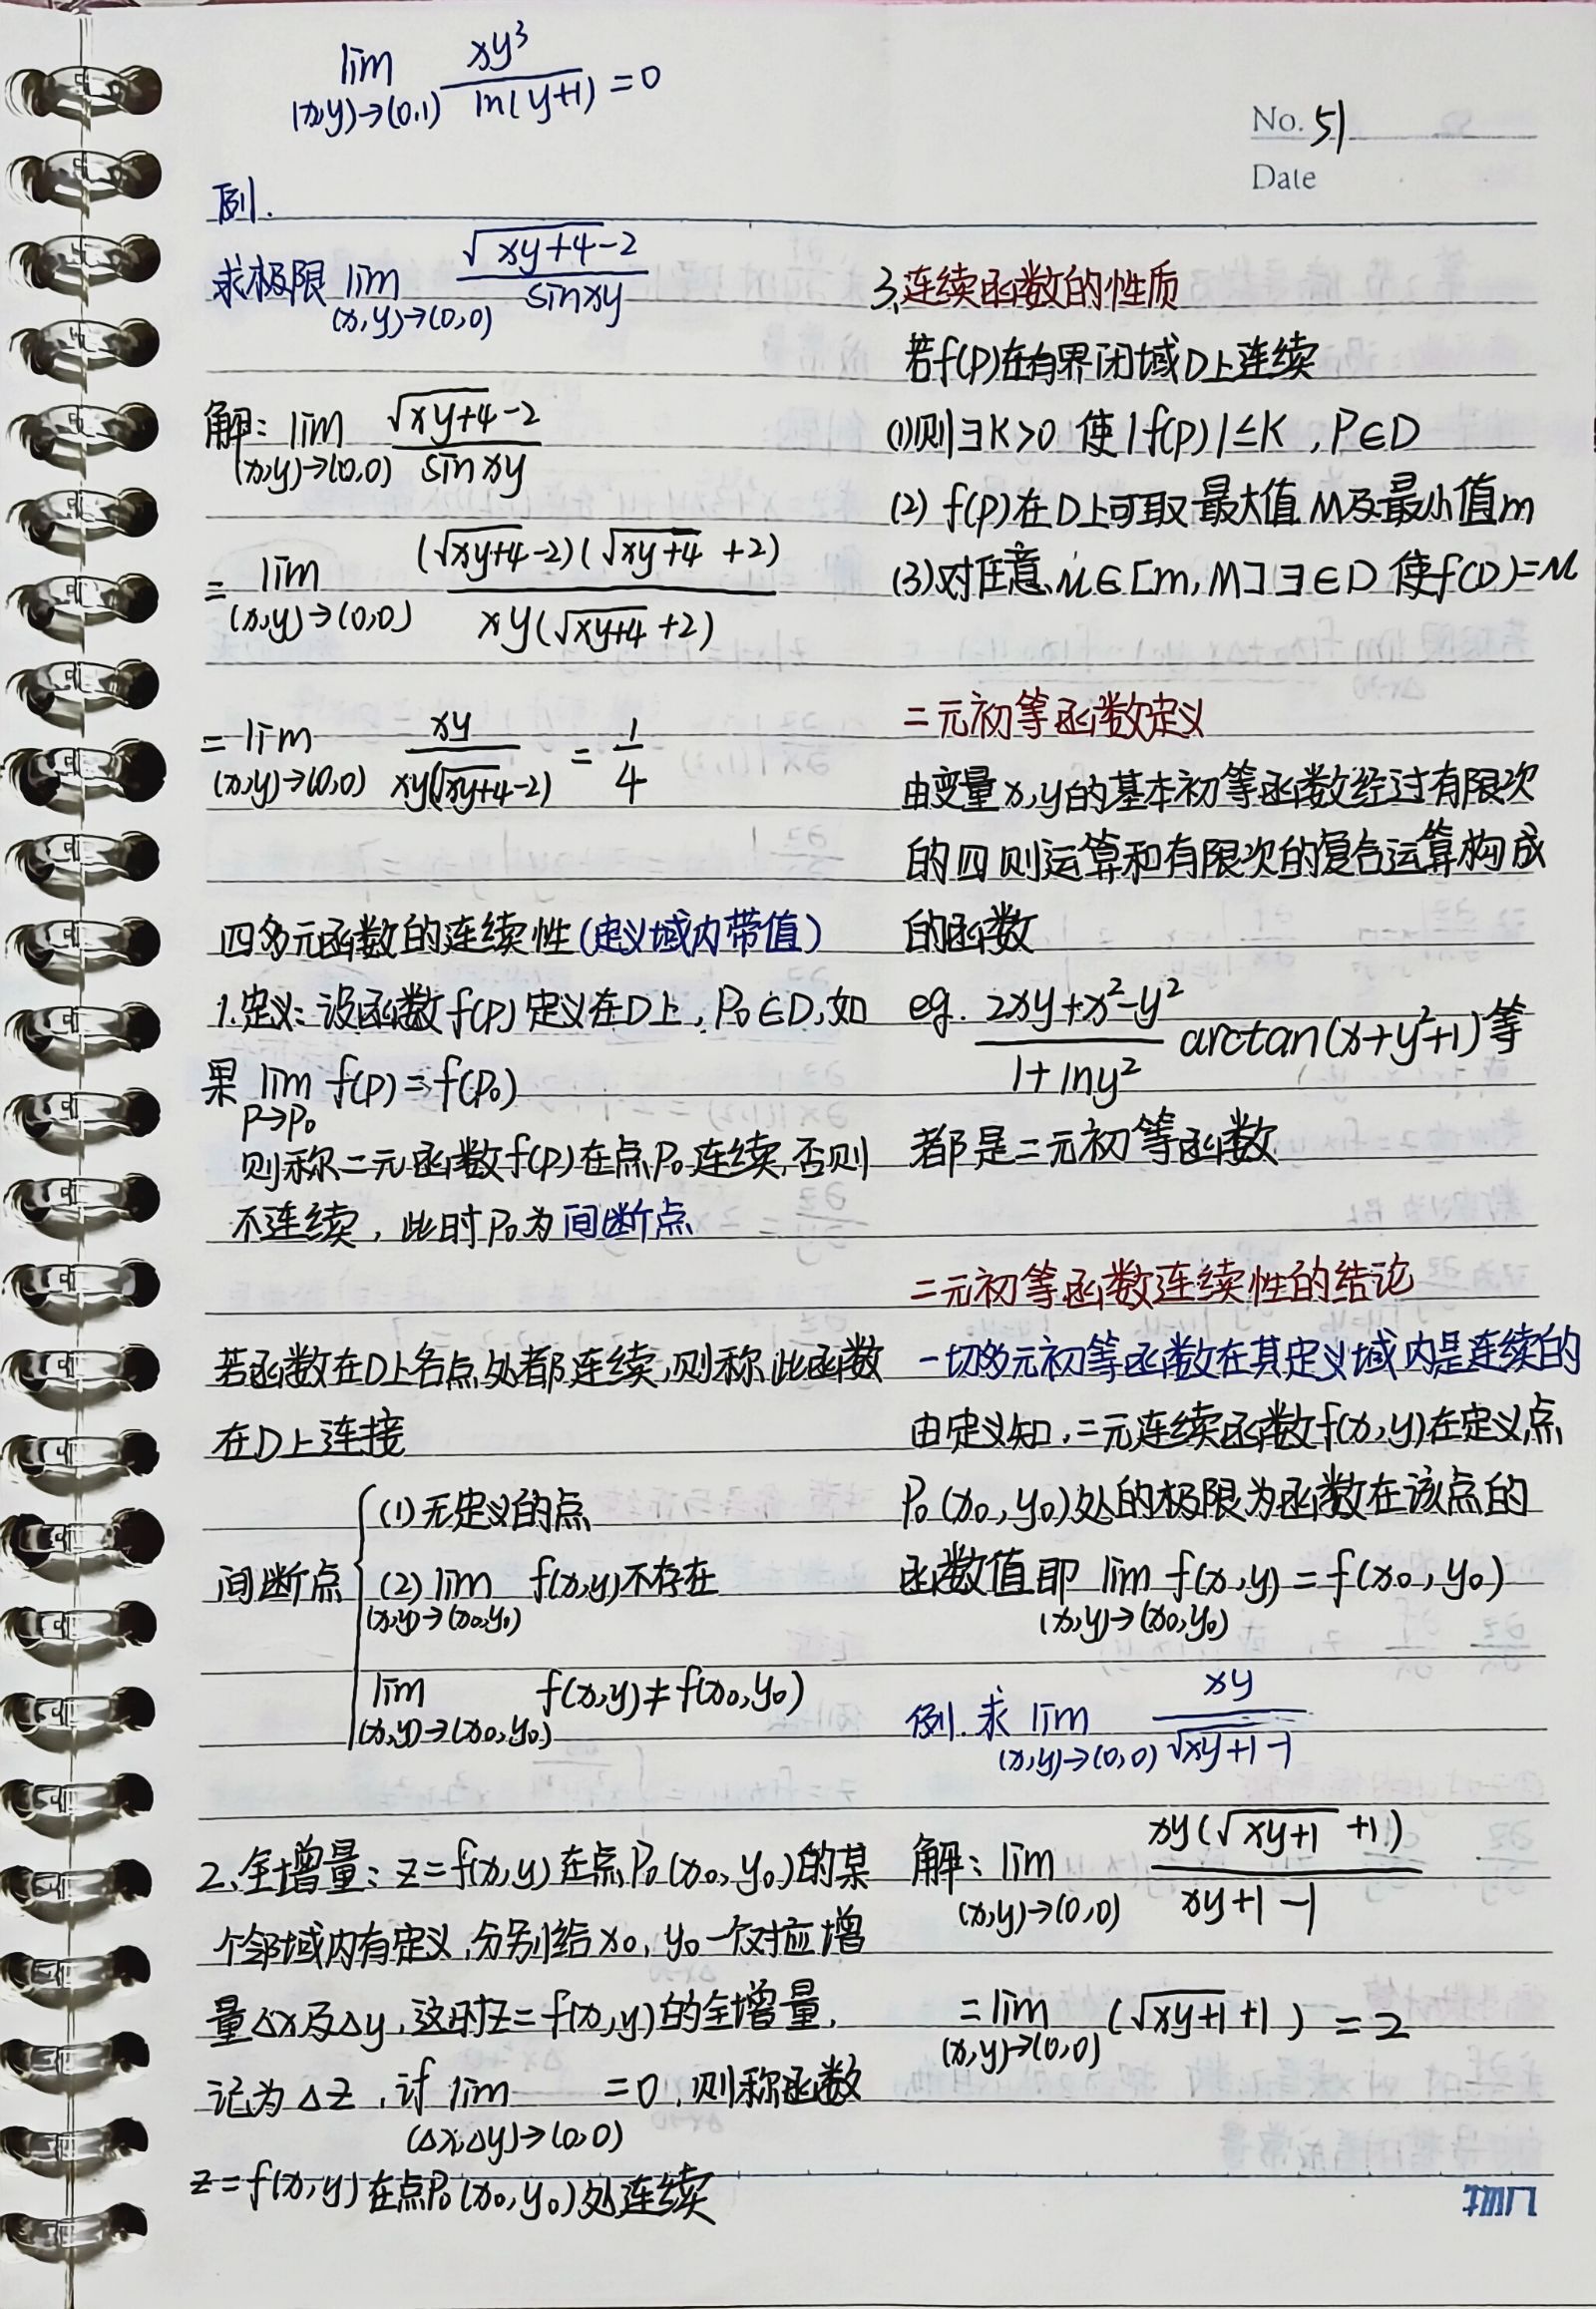 lim xy³
(x,y)→(0,1) ln(y+1) =0
No. 51
Date
例.
求极限 lim √xy+4-2
(x,y)→(0,0) sinxy
解: lim √xy+4-2
(x,y)→(0,0) sinxy
= lim (√xy+4-2)(√xy+4+2)
(x,y)→(0,0) xy(√xy+4+2)
= lim xy = 1
(x,y)→(0,0) xy(√xy+4-2) 4
四多元函数的连续性(定义域内带值)
1.定义: 设函数f(p)定义在D上, P₀∈D,如
果 lim f(p)=f(p₀)
P→P₀
则称二元函数f(p)在点P₀连续,否则
不连续, 此时P₀为间断点
若函数在D上各点处都连续,则称此函数
在D上连接
间断点
(1)无定义的点
(2)lim f(x,y)不存在
(x,y)→(x₀,y₀)
lim f(x,y)≠f(x₀,y₀)
(x,y)→(x₀,y₀)
2.全增量: z=f(x,y)在点P₀(x₀,y₀)的某
个邻域内有定义,分别给x₀,y₀一个对应增
量△x及△y,这时z=f(x,y)的全增量,
记为△z,讨 lim =0,则称函数
(△x,△y)→(0,0)
z=f(x,y)在点P₀(x₀,y₀)处连续
3.连续函数的性质
若f(p)在有界闭域D上连续
(1)则∃K>0 使|f(p)|≤K,P∈D
(2) f(p)在D上可取最大值M及最小值m
(3)对任意μ∈[m,M]∃∈D 使f(D)=μ
二元初等函数定义
由变量x,y的基本初等函数经过有限次
的四则运算和有限次的复合运算构成
的函数
eg. 2xy+x²-y²
1+lny² arctan(x+y²+1)等
都是二元初等函数
二元初等函数连续性的结论
一切多元初等函数在其定义域内是连续的
由定义知,二元连续函数f(x,y)在定义点
P₀(x₀,y₀)处的极限为函数在该点的
函数值即 lim f(x,y)=f(x₀,y₀)
(x,y)→(x₀,y₀)
例.求 lim xy
(x,y)→(0,0) √xy+1-1
解: lim xy(√xy+1+1)
(x,y)→(0,0) xy+1-1
=lim (√xy+1+1) =2
(x,y)→(0,0)